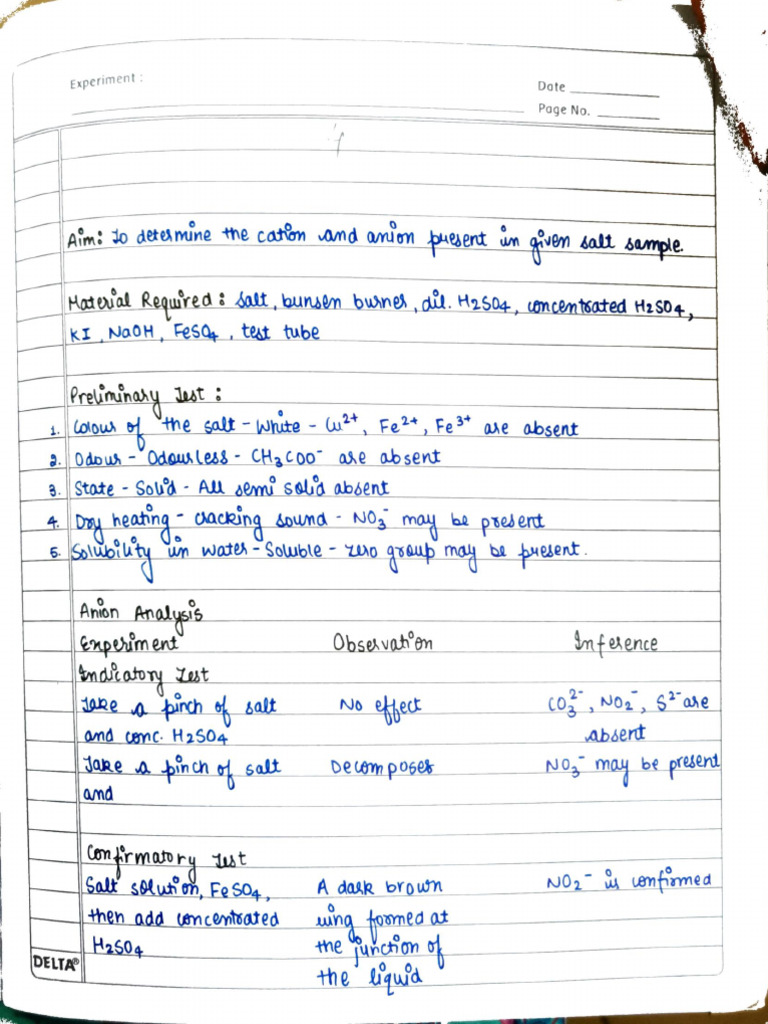 Experiment :
Date
Page No.
Aim: To determine the cation and anion present in given salt sample.
Material Required : Salt, bunsen burner, dil. H2SO4, concentrated H2SO4,
KI, NaOH, FeSO4, test tube
Preliminary Test :
1. Colour of the salt - White - Cu²⁺, Fe²⁺, Fe³⁺ are absent
2. Odour - Odourless - CH3COO⁻ are absent
3. State - Solid - All semi solid absent
4. Dry heating - cracking sound - NO3⁻ may be present
5. Solubility in water - Soluble - zero group may be present.
Anion Analysis
Experiment Observation Inference
Indicatory Test
Take a pinch of salt No effect CO3²⁻, NO2⁻, S²⁻ are
and conc. H2SO4 absent
Take a pinch of salt Decomposes NO3⁻ may be present
and
Confirmatory Test
Salt solution, FeSO4, A dark brown NO2⁻ is confirmed
then add concentrated ring formed at
H2SO4 the junction of
the liquid
DELTA®